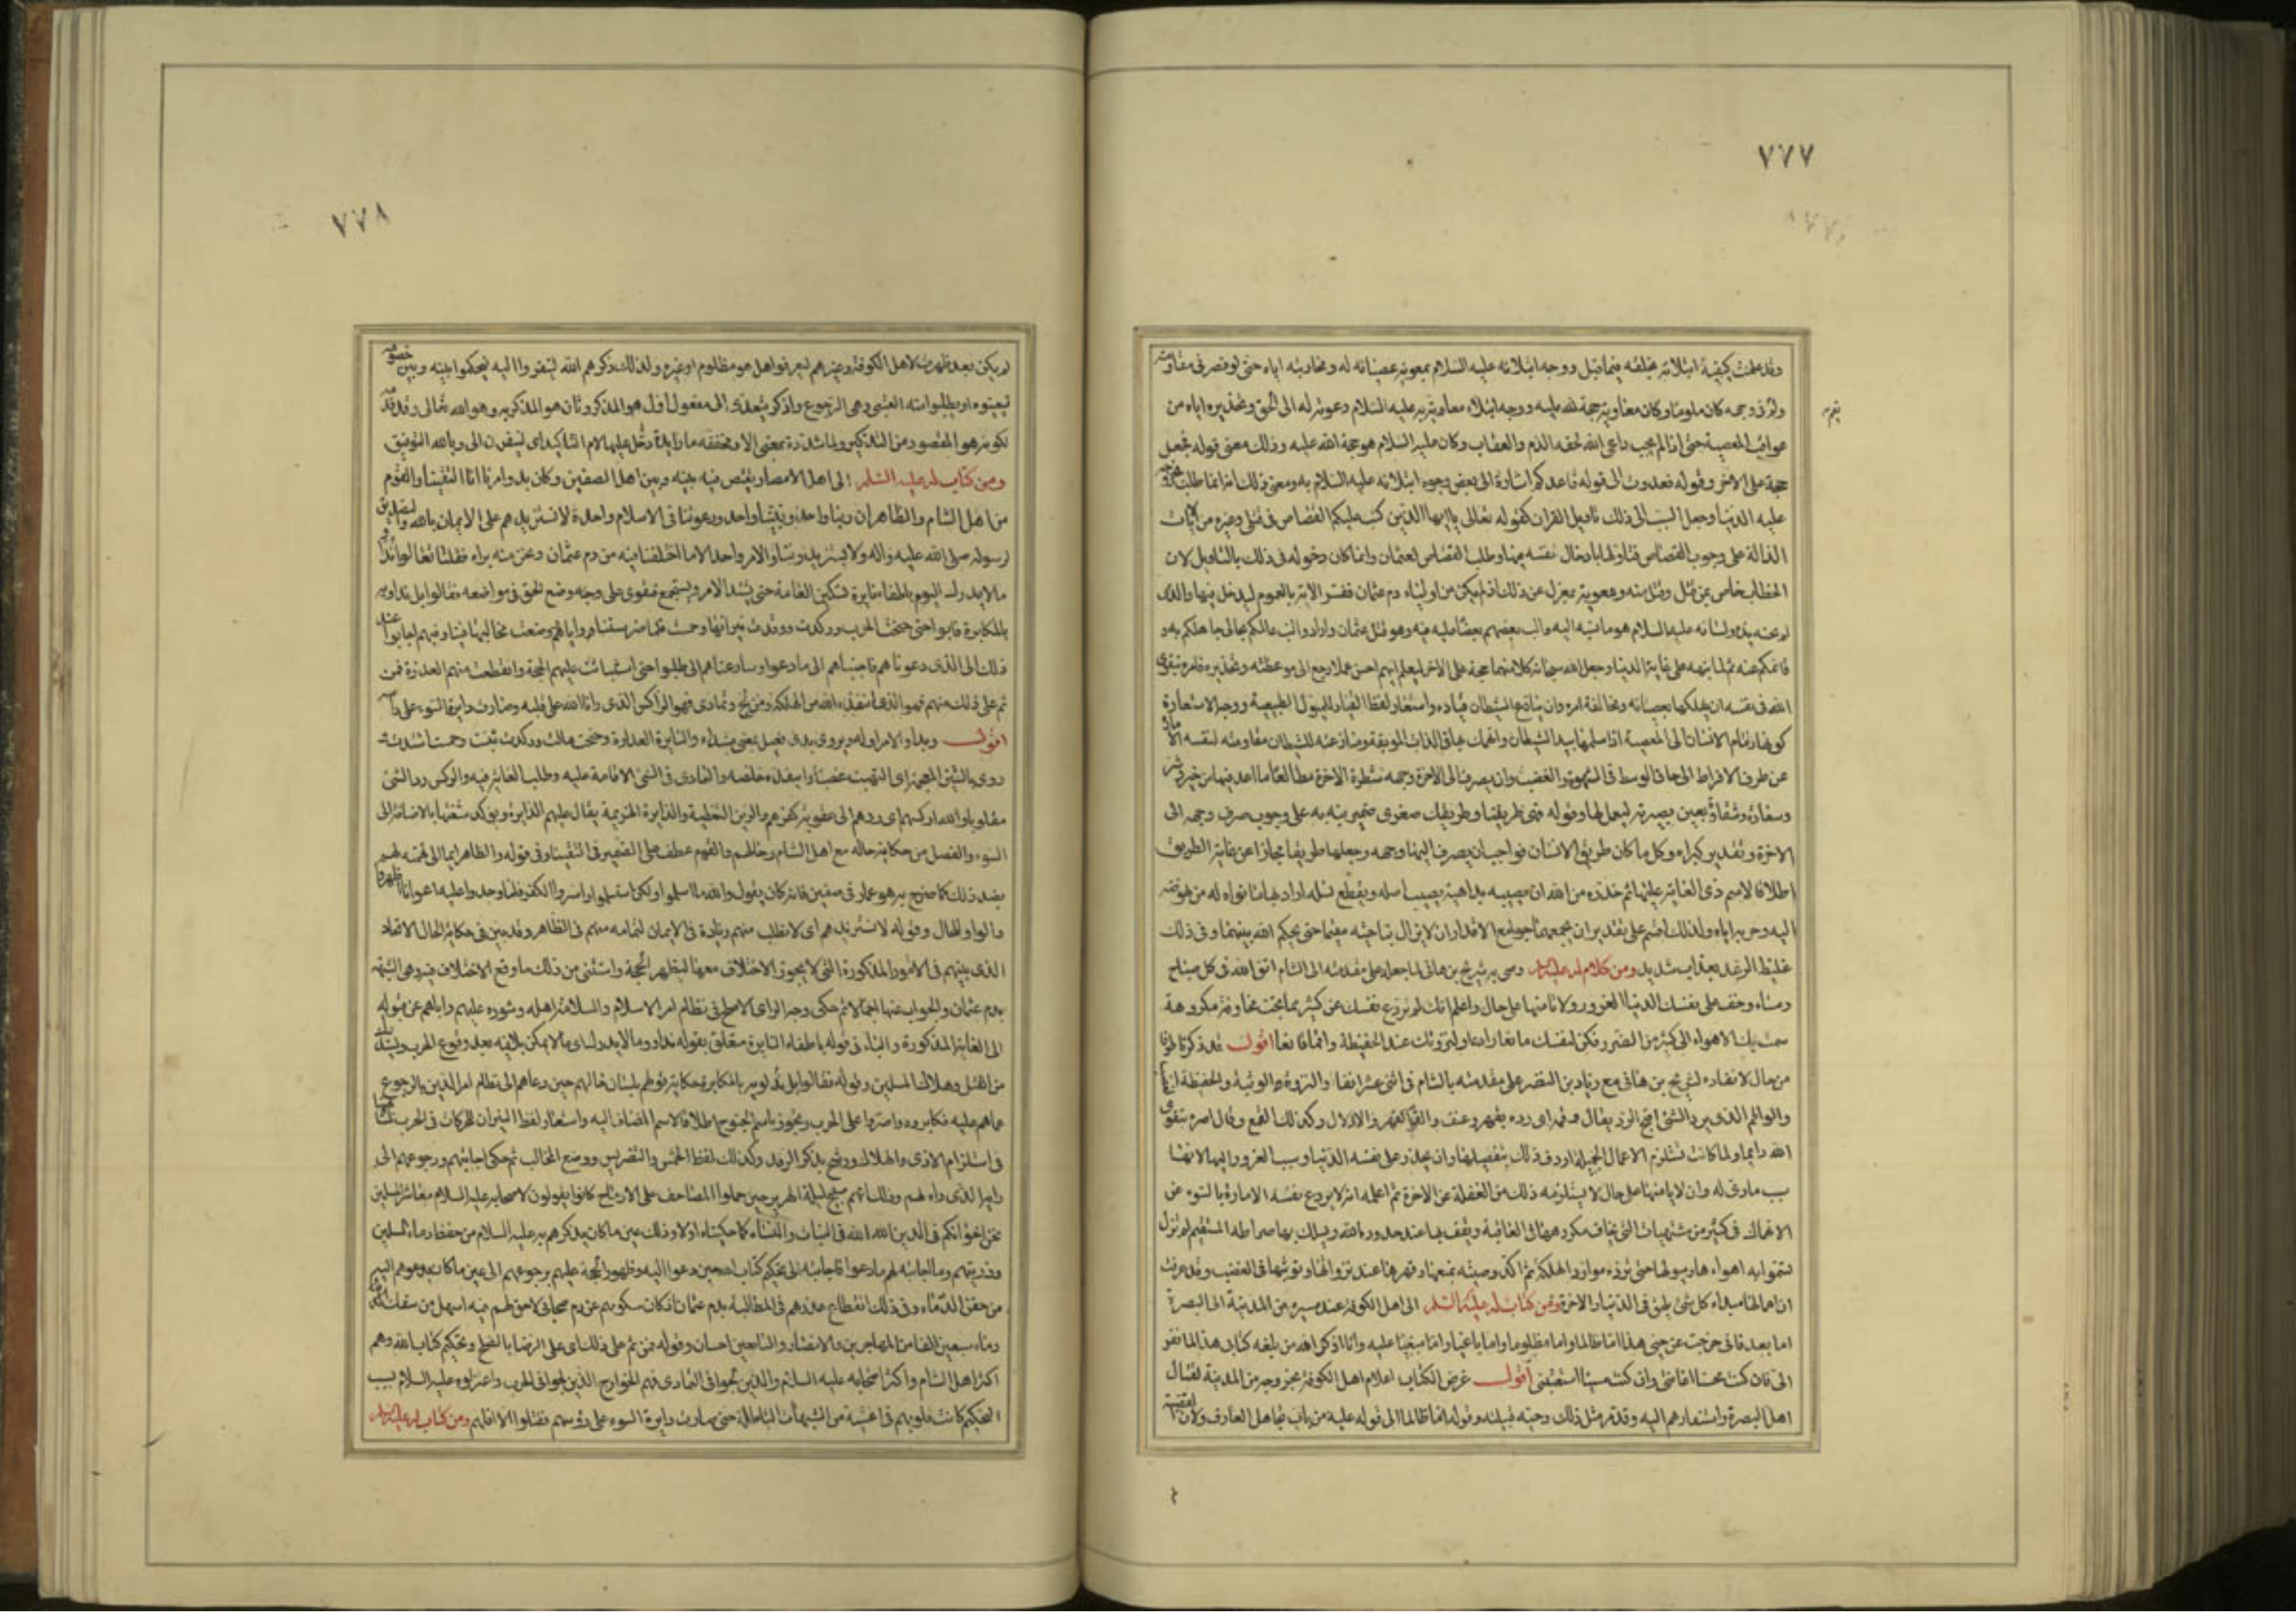 ٧٧٧
وقد علمت كيفية ابتلائه بخلقه فيما قبل ووجه ابتلائه عليه السلام بمعوية عصيانه له ومحاربته اياه حتى لو قصر في مقاومته
كان ملوما وكان معاوية حجة لله عليه ووجه ابتلاء معاوية به عليه السلام دعوته له الى الحق وتحذيره اياه من
عواقب المعصية حتى اذا لم يجب داعي الله لحقه الذم والعقاب وكان عليه السلام هو حجة الله عليه وذلك معنى قوله فجعل
حجة على الاخر وقوله فعدوت الى قوله قاعدكم اشارة الى بعض وجوه ابتلائه عليه السلام به ومعنى ذلك انه انما طلب
عليه الدنيا وجعل السبب الى ذلك تاويل القران كقوله تعالى يا ايها الذين كتب عليكم القصاص في القتلى وغيره من الآيات
الدالة على وجوب القصاص فتاولها بادخال نفسه فيها وطلب القصاص لعثمان وانما كان دخوله في ذلك بالتاويل لان
الخطاب خاص بمن قتل وقتل منه ومعوية بمعزل عن ذلك اذ لم يكن من اولياء دم عثمان ففسر الاية بالعموم ليدخل فيها والذى
لم تجنه يده ولسانه عليه السلام هو ما نسبه اليه والب بعضهم بعضا عليه فيه وهو قتل عثمان واراد والب عالمكم جاهلكم به و
قائمكم عنه ثم لما نبهه على غاية الدنيا وجعل الله سبحانه كلا منهما حجة على الاخر ليعلم ايهم احسن عملا رجع الى موعظته وتحذيره فامره بتقوى
الله في نفسه ان يهلكها بعصيانه ومخالفة امره وان ينازع الشيطان قياده واستعار لفظ القياد للميول الطبيعية ووجه الاستعارة
كونها زمام الانسان الى المعصية اذا سلمها بيد الشيطان وانهمك بها في اللذات الموبقة ومنازعته للشيطان مقاومته لنفسه
عن طرف الافراط الى حاق الوسط في الشهوة والغضب وان يصرف الى الاخرة وجهه
وسعادة وشقاوة بعين بصيرته ليعمل لها وقوله فهى طريقنا وطريقك صغرى ضمير نبه به على وجوب صرف وجهه الى
الاخرة وتقدير كبراه وكل ما كان طريق الانسان فواجب ان يصرف اليها وجهه وجعلها طريقا مجازا عن غاية الطريق
اطلاقا لاسم ذى الغاية عليها ثم حذره من الله ان يصيبه بداهية يصيب اصله ويقطع نسله اراد بها ما نواه له من نهوضه
اليه وحربه اياه ولذلك اقسم على تقدير ان يجمعهما جوامع الاقدار ان لا يزال بباحته مقيما حتى يحكم الله بينهما وفى ذلك
غليظ الوعيد بعذاب شديد ومن كلام له عليه السلام وصى به شريح بن هانى لما جعله على مقدمته الى الشام اتق الله فى كل صباح
ومساء وخف على نفسك الدنيا الغرور ولا تامنها على حال واعلم انك لم تردع نفسك عن كثير مما تحب مخافة مكروهه
سمت بك الاهواء الى كثير من الضرر فكن لنفسك مانعا رادعا ولنزوتك عند الحفيظة واقما قامعا اقول قد ذكرنا طرفا
من حال انفاذه لشريح بن هانى مع زياد بن النضر على مقدمته بالشام فى اثنى عشر الفا والنزوة الوثبة والحفيظة
والواقم الذى يرد الشئ اقبح الرد يقال وقمه اى رده بقهر وعنف والقمع القهر والاذلال وكذلك القمع وقال امره بتقوى
الله دايما ولما كانت تستلزم الاعمال الجميلة اردف ذلك بتفصيلها وان يحذر على نفسه الدنيا ونسب الغرور اليها لانها
سبب مادى له وان لا يامنها على حال لا يستلزمه ذلك من الغفلة عن الاخرة ثم اعلمه انه لا يردع نفسه الامارة بالسوء عن
الانهماك فى كثير من مشتهياته التى يخاف مكروهها فى العاقبة ويقف بها عند حدود الله ويسلك بها صراطه المستقيم لم تزل
تسمو به اهواءها وميولها حتى تورده موارد الهلكة ثم اكد وصيته بمنعها وقهرها عند نزواتها وتوثبها فى الغضب وقد عرفت
ان اهمالها مبداء كل شر يلحق فى الدنيا والاخرة ومن كتاب له عليه السلام الى اهل الكوفة عند مسيره من المدينة الى البصرة
اما بعد فانى خرجت عن حيي هذا اما ظالما واما مظلوما واما باغيا واما مبغيا عليه وانا اذكر الله من بلغه كتابى هذا لما نفر
الى فان كنت محسنا اعاننى وان كنت مسيئا استعتبنى اقول غرض الكتاب اعلام اهل الكوفة بخروجه من المدينة لقتال
اهل البصرة واستنفارهم اليه وقد مر مثل ذلك وحيه قبيلته وقوله اما ظالما الى قوله عليه من باب تجاهل العارف ولان القضية
٧٧٨
لم يكن بعد ظهرت لاهل الكوفة وغيرهم ليعرفوا هل هو مظلوم او غيره ولذلك ذكرهم الله لينفروا اليه ليحكموا بينه وبين خصومه
فيعينوه او يطلبوا منه العتبى وهى الرجوع واذكر يتعدى الى مفعول اول هو المذكر وثان هو المذكر به وهو الله تعالى وقد
لكونه هو المقصود من التذكير ولما مشددة بمعنى الا ومخففه ما زايدة دخل عليها لام التاكيد اى لينفرن الى وبالله التوفيق
ومن كتاب له عليه السلام الى اهل الامصار يقتص فيه ما جرى بينه وبين اهل الصفين وكان بدو امرنا انا التقينا والقوم
من اهل الشام والظاهر ان ربنا واحد ونبينا واحد ودعوتنا فى الاسلام واحدة لا نستزيدهم على الايمان بالله والتصديق
لرسوله صلى الله عليه واله ولا يستزيدوننا والامر واحد الا ما اختلفنا فيه من دم عثمان ونحن منه براء فقلنا تعالوا نداو
ما لا يدرك اليوم باطفاء نايرة وتسكين العامة حتى يشتد الامر ويستجمع فنقوى على وضع الحق فى مواضعه فقالوا بل نداويه
بالمكابرة فابوا حتى جنحت الحرب وركدت ووقدت نيرانها وحمست فلما ضرستنا واياهم ووضعت مخالبها فينا وفيهم اجابوا عند
ذلك الى الذى دعوناهم فاجبناهم الى ما دعوا وسارعناهم الى ما طلبوا حتى استبانت عليهم الحجة وانقطعت منهم المعذرة فمن
تم على ذلك منهم فهو الذى انقذه الله من الهلكة ومن لج وتمادى فهو الراكس الذى ران الله على قلبه وصارت دايرة السوء على راسه
اقول وبداو الامر اوله ويروى بدى فعيل بمعنى مبتداء والنايرة العداوة وجنحت مالت وركدت ثبتت وحمست اشتدت
وروى بالشين المعجمة اى التهبت غضبا وانقذه خلصه والتمادى فى الشئ الاقامة عليه وطلب الغاية فيه والركس رد الشئ
مقلوبا والله اركسهم اى ردهم الى عقوبة كفرهم والرين التغطية والدايرة الهزيمة يقال عليهم الدايرة ويؤكد شنعتها بالاضافة الى
السوء والفصل من حكاية حاله مع اهل الشام وحالهم والقوم عطف على الضمير فى التقينا وفى قوله والظاهر ايماء الى تهمته لهم
بضد ذلك كما صرح به هو وعمار فى صفين فانه كان يقول والله ما اسلموا ولكن استسلموا واسروا الكفر فلما وجدوا عليه اعوانا اظهروه
والواو للحال وقوله لا نستزيدهم اى لا نطلب منهم زيادة فى الايمان لتمامه منهم فى الظاهر وقد بين فى حكاية الحال الاتحاد
الذى بينهم فى الامور المذكورة التى لا يجوز الاختلاف معها ليظهر الحجة واستثنى من ذلك ما وقع الاختلاف فيه وهى الشبهة
بدم عثمان والجواب عنها اجمالا ثم حكى وجه الراى الاصلح فى نظام امر الاسلام والسلامة لاهله وشوره عليهم واباهم عن قبوله
الى الغاية المذكورة والباء فى قوله باطفاء النايرة متعلق بقوله نداو وما لا يدرك اى ما لا يمكن تلافيه بعد وقوع الحرب
من القتل وهلاك المسلمين وقوله فقالوا بل نداويه بالمكابرة حكاية قولهم بلسان حالهم حين دعاهم الى نظام امر الدين بالرجوع
عما هم عليه فكابروه واصروا على الحرب وتجوز باسم الجنوح اطلاقا لاسم المضاف اليه واستعار لفظ النيران للحركات فى الحرب
فى استلزام الاذى والهلاك ورشح بذكر الوقد وكذلك لفظ الحمس والتضريس ووضع المخالب ثم حكى اجابتهم ورجوعهم الى
رايه الذى راه لهم وذلك انهم صبيحة ليلة الهرير حين حملوا المصاحف على الارماح كانوا يقولون لاصحابه عليه السلام معاشر المسلمين
نحن اخوانكم فى الدين الله الله فى البنات والنساء كما حكيناه اولا وذلك عين ما كان يذكرهم به عليه السلام من حفظ دماء المسلمين
وذريتهم وما اجابته لهم ما دعوا فاجابته الى تحكيم كتاب الله حين دعوا اليه وظهور الحجة عليهم برجوعهم الى عين ما كان يدعوهم اليه
من حقن الدماء وفى ذلك انقطاع عذرهم فى المطالبة بدم عثمان اذ كان سكوتهم عن دم صحابى لا حق لهم فيه اسهل من سفك
دماء سبعين الفا من المهاجرين والانصار والتابعين باحسان وقوله فمن تم على ذلك اى على الرضا بالصلح وتحكيم كتاب الله وهم
اكثر اهل الشام واكثر اصحابه عليه السلام والذين لجوا فى التمادى فهم الخوارج الذين لجوا فى الحرب واعتزلوه عليه السلام بسبب
التحكيم كانت قلوبهم فى اغشية من الشبهات الباطلة حتى صارت دايرة السوء على رؤسهم فقتلوا الا اقلهم ومن كتاب له عليه السلام